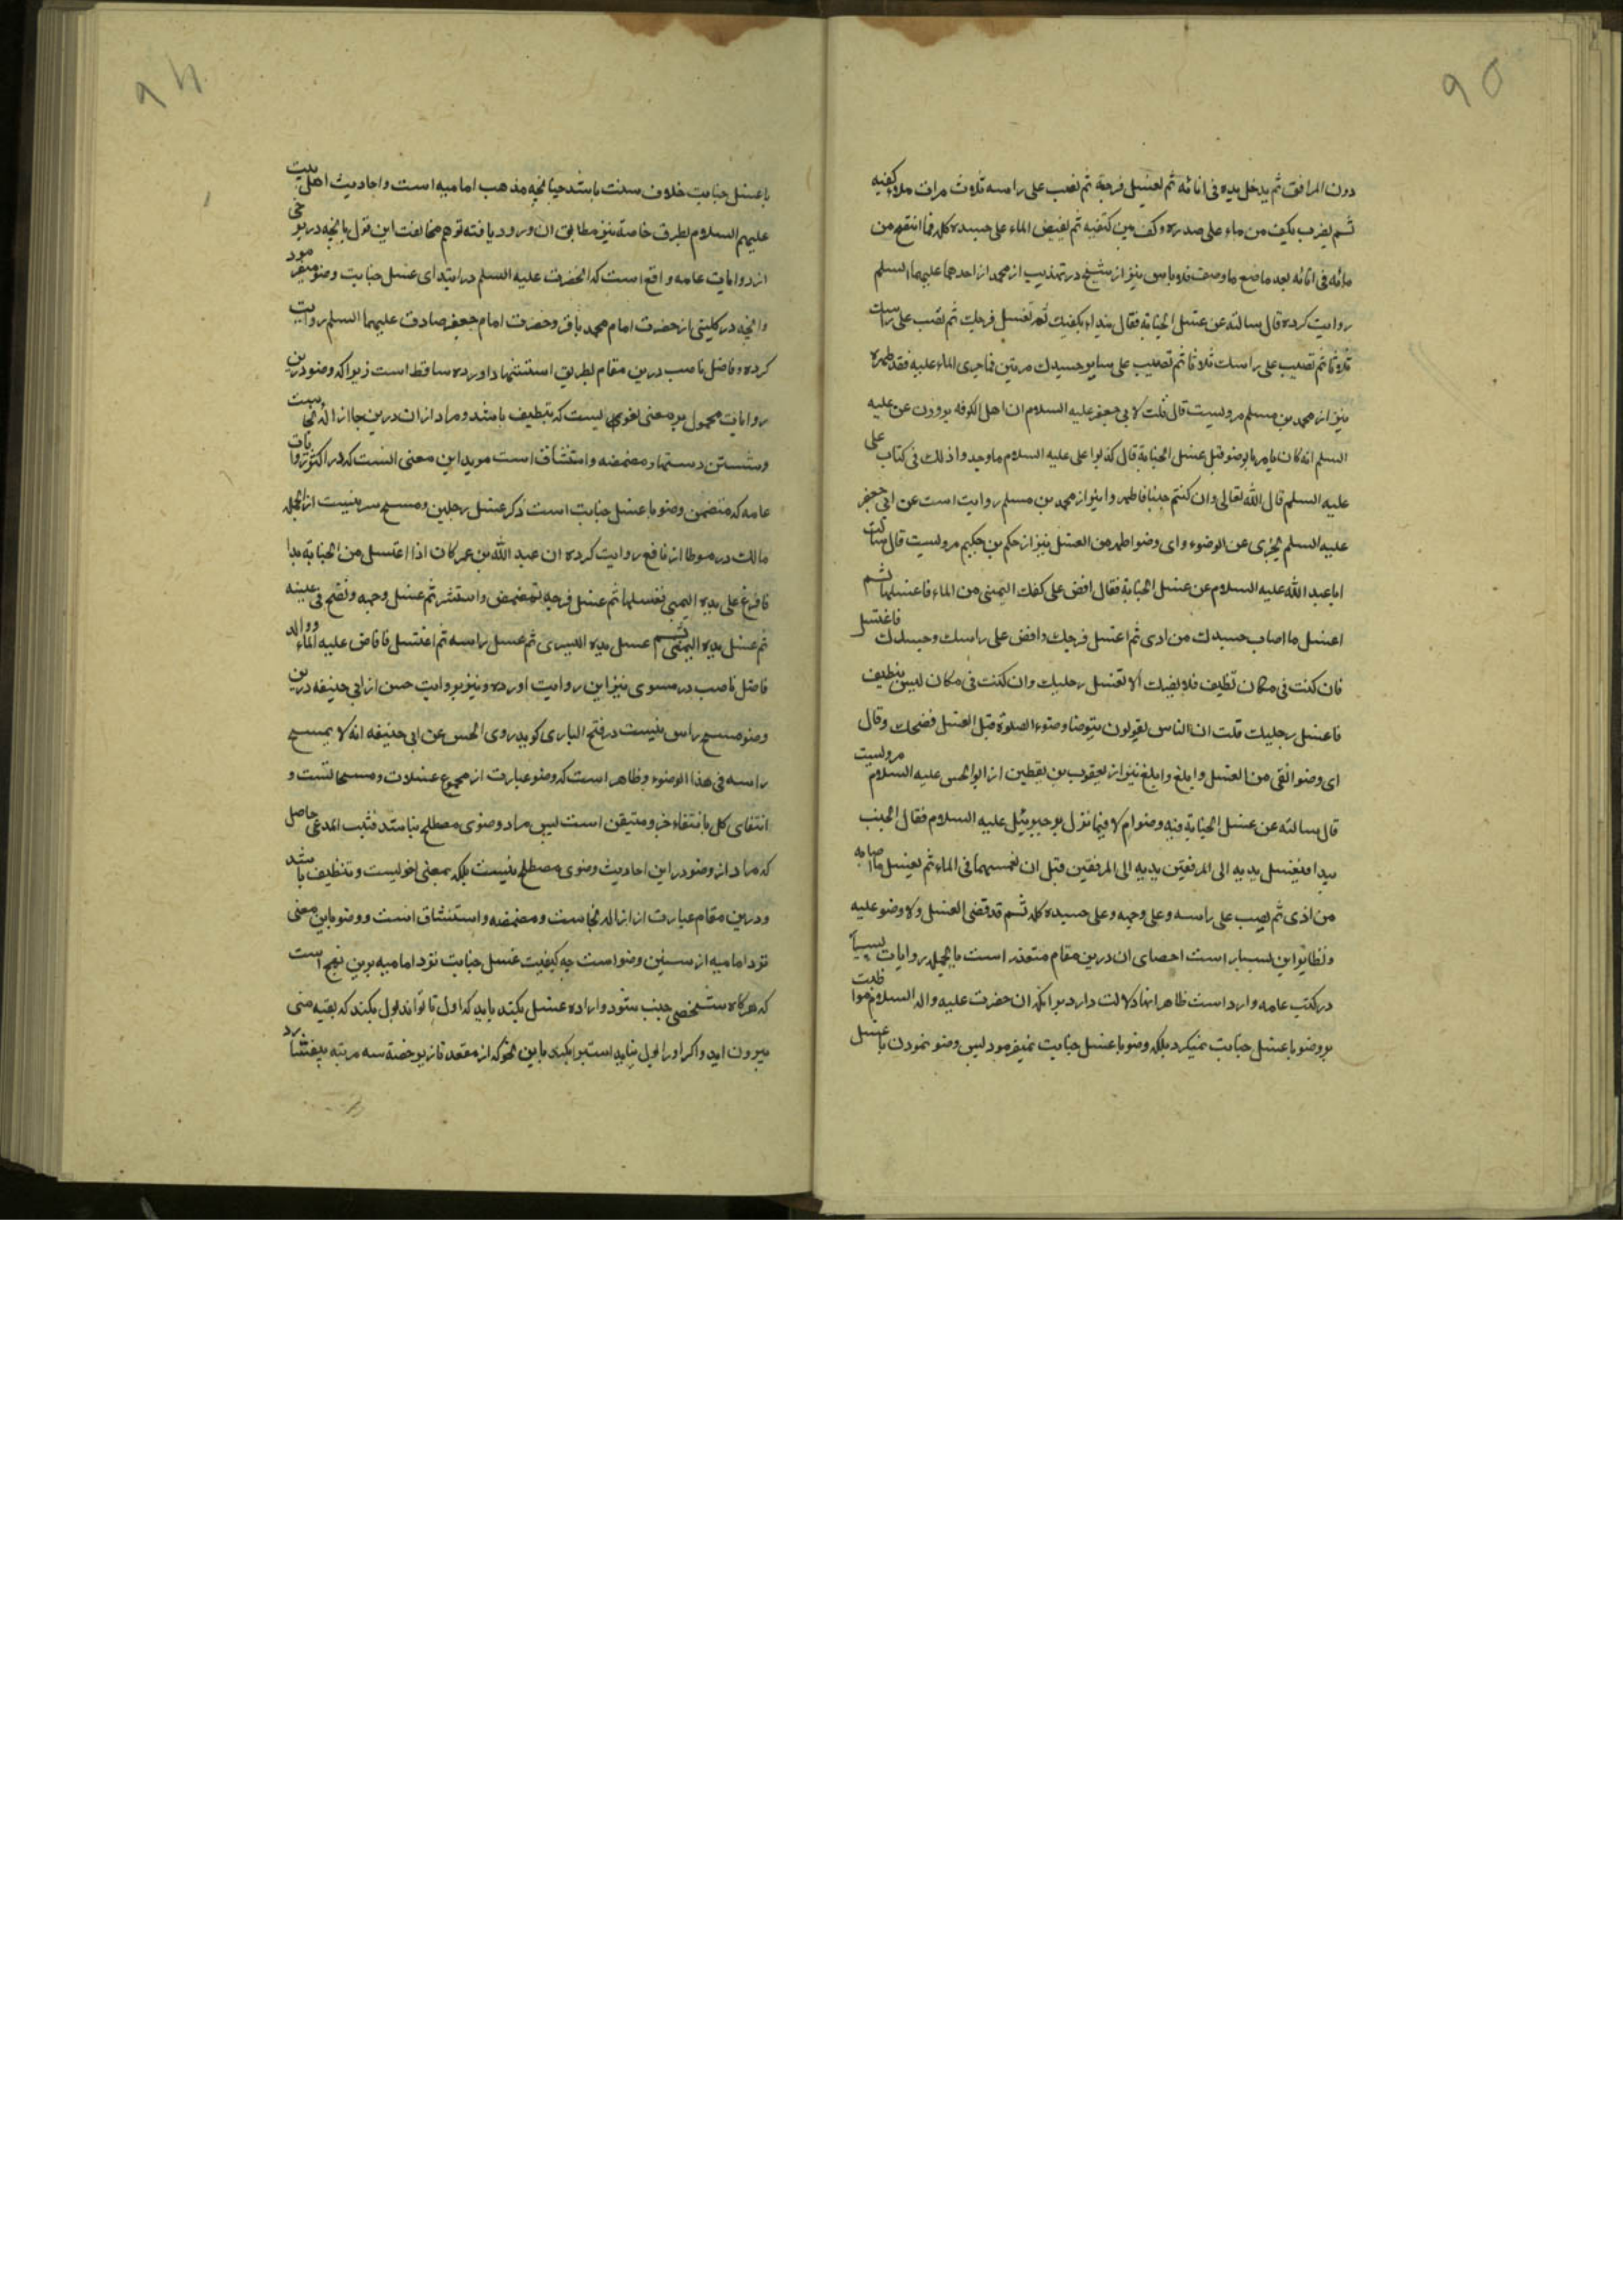 ۹۵
دون المرافق ثم یدخل یده فی انائه ثم یغسل فرجه ثم یصب علی راسه ثلاث مرات ملاء کفیه
ثم یضرب بکف من ماء علی صدره وکف بین کتفیه ثم یفیض الماء علی جسده کله فما انتضح من
مائه فی انائه بعد ما صنع ما وصفت فلا باس نیز از شیخ در تهذیب از محمد از احدهما علیهما السلم
روایت کرده قال سالته عن غسل الجنابة فقال تبداء بکفیک ثم تغسل فرجک ثم تصب علی راسک
ثلاثا ثم تصب علی راسک ثلاثا ثم تصب علی سایر جسدک مرتین فما جری الماء علیه فقد طهره
نیز از محمد بن مسلم مرویست قال قلت لابی جعفر علیه السلام ان اهل الکوفه یروون عن علیه
السلم انه کان یامر بالوضو قبل غسل الجنابة قال کذبوا علی علیه السلام ما وجدوا ذلک فی کتاب علی
علیه السلم قال الله تعالی وان کنتم جنبا فاطهروا نیز از محمد بن مسلم روایت است عن ابی جعفر
علیه السلم یجزی عن الوضوء وای وضو اطهر من الغسل نیز از حکم بن حکیم مرویست قال سالت
اباعبد الله علیه السلام عن غسل الجنابة فقال افض علی کفک الیمنی من الماء فاغسلها ثم
اغسل ما اصاب جسدک من اذی ثم اغسل فرجک وافض علی راسک وجسدک فاغتسل
فان کنت فی مکان نظیف فلا یضرک الا تغسل رجلیک وان کنت فی مکان لیس بنظیف
فاغسل رجلیک قلت ان الناس یقولون یتوضا وضوء الصلوة قبل الغسل فضحک وقال
ای وضو انقی من الغسل وابلغ وابلغ نیز از یعقوب بن یقطین از ابوالحسن علیه السلام مرویست
قال سالته عن غسل الجنابة فیه وضو ام لا فیما نزل به جبریئل علیه السلام فقال الجنب
یبدا فیغسل یدیه الی المرفقین یدیه الی المرفقین قبل ان یغمسهما فی الماء ثم یغسل ما اصابه
من اذی ثم یصب علی راسه وعلی وجهه وعلی جسده کله ثم قد قضی الغسل ولا وضو علیه
ونظایر این بسیار است احصای ان درین مقام متعذر است بالجمله روایات بسیار
در کتب عامه وارد است ظاهر انها دلالت دارد بر انکه ان حضرت علیه واله السلام مواظبت
بر وضو با غسل جنابت نمیکرد بلکه وضو با غسل جنابت نمیفرمود پس وضو نمودن با غسل
۹۴
با غسل جنابت خلاف سنت باشد چنانچه مذهب امامیه است واحادیث اهل بیت
علیهم السلام بطرق خاصه نیز مطابق ان ورود یافته توهم مخالفت این قول بانچه در برخی
از روایات عامه واقع است که انحضرت علیه السلم در ابتدای غسل جنابت وضو میفرمود
وانچه در کلینی از حضرت امام محمد باقر وحضرت امام جعفر صادق علیهما السلم روایت
کرده وفاضل ناصب درین مقام بطریق استشهاد اورده ساقط است زیرا که وضو درین
روایات محمول بر معنی لغوی لیست که تنظیف باشد ومراد از ان درین جا ازاله نجاست
وشستن دستها ومضمضه واستنشاق است موید این معنی انست که در اکثر روایات
عامه که متضمن وضو با غسل جنابت است ذکر غسل رجلین ومسح سر نیست از انجمله
مالک در موطا از نافع روایت کرده ان عبد الله بن عمر کان اذا اغتسل من الجنابة بدا
فافرغ علی یده الیمنی فغسلها ثم غسل فرجه ثم مضمض واستنثر ثم غسل وجهه ونضح فی عینیه
ثم غسل یده الیمنی ثم غسل یده الیسری ثم غسل راسه ثم اغتسل فافاض علیه الماء ووالد
فاضل ناصب در مسوی نیز این روایت اورده ونیز بروایت حسن از ابی حنیفه درین
وضو مسح راس نیست در فتح الباری کوید روی الحسن عن ابی حنیفه انه لا یمسح
راسه فی هذا الوضوء وظاهر است که وضو عبارت از مجموع غسلات ومسحاتست و
انتفای کل بانتفاء جزو متیقن است پس مراد وضوی مصطلح نباشد فثبت المدعی حاصل
که مراد از وضو در این احادیث وضوی مصطلح نیست بلکه بمعنی لغویست وتنظیف باشد
ودرین مقام عبارت از ازاله نجاست ومضمضه واستنشاق است ووضو باین معنی
نزد امامیه از سنن وضو است چه کیفیت غسل جنابت نزد امامیه برین نهج است
که هرکاه شخصی جنب شود واراده غسل بکند باید که اول تا تواند بول بکند که بقیه منی
بیرون اید واکر او را بول نیاید استبرا بکند باین نحو که از مقعد تا زیر خصیه سه مرتبه بیفشارد